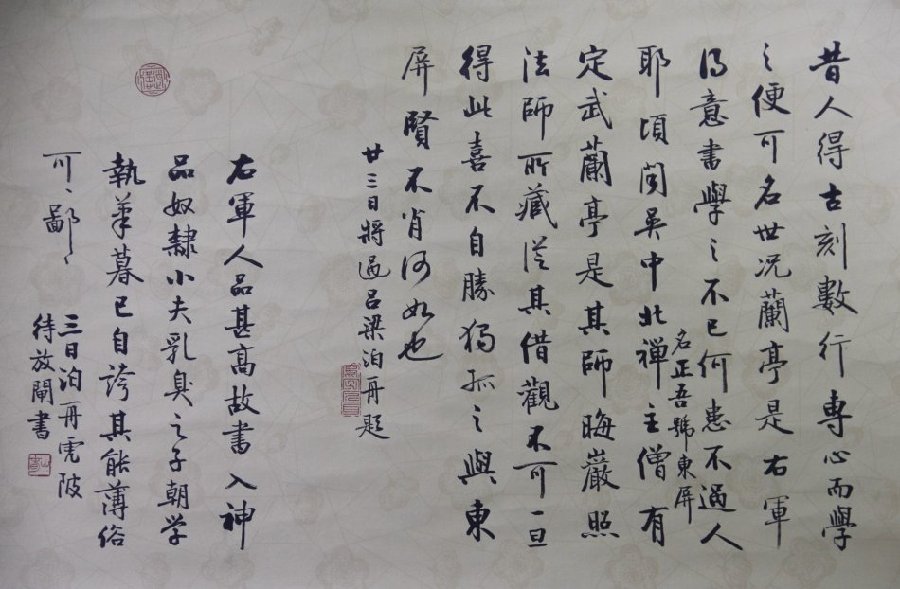 昔人得古刻數行專心而學
之便可名世况蘭亭是右軍
得意書學之不已何患不過人
名正吾號東屏
耶頃聞吳中北禪主僧有
定武蘭亭是其師晦巖照
法師所藏從其借觀不可一旦
得此喜不自勝獨孤之與東
屏賢不肖何如也
廿三日將過呂梁泊舟題
右軍人品甚高故書入神
品奴隸小夫乳臭之子朝学
執筆暮已自誇其能薄俗
可〻鄙〻
三日泊舟虎陂
待放閘書